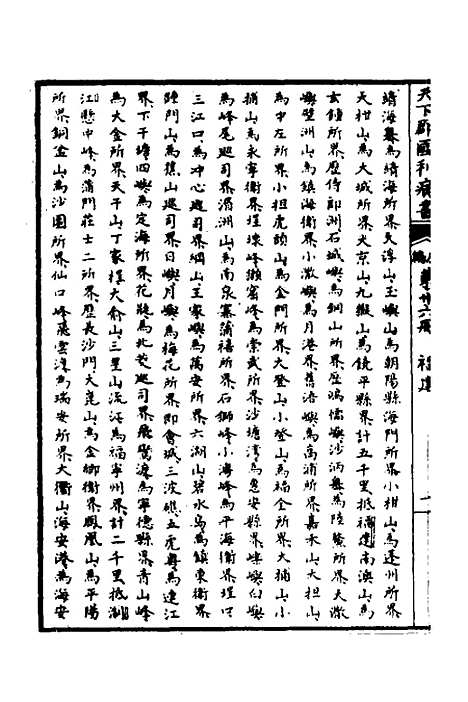 天下郡國利病書 福建 一
靖海𡶶爲靖海所界天淳山玉嶼山爲朝陽縣海門所界小柑山爲蓬州所界
大柑山爲大城所界大京山九嶷山爲饒平縣界計五千里抵福建南澳山爲
玄鍾所界歷侍郎洲石城嶼爲銅山所界歷鴻儒嶼沙爲陸鰲所界大澂
嶼壁洲山爲鎮海衛界小澂嶼爲月港界舊浯嶼爲高浦所界嘉禾山大担山
爲中左所界小担虎頭山爲金門所界大登山小登山爲福全所界大捕山小
捕山爲永寧衛界埕埭峰獺窟峰爲崇武所界沙塘灣爲惠安縣界樂嶼臼嶼
爲峰尾巡司界湄洲山爲南泉寨蒲禧所界石獅峰小海峰爲平海衛界埕口
三江口爲冲心巡司界綱山王家嶼爲萬安所界六湖山碧水島爲鎮東衛界
鍾門山爲蕉山巡司界日嶼月嶼爲梅花所界即會城三波礁五虎爲連江
界下干塘四嶼爲定海所界花瓶爲北茭巡司界飛鸞渡爲寧德縣界青山峰
爲大金所界天干山丁家樣大俞山三星山流江爲福寧州界計二千里抵浙
江懸中峰爲蒲門莊士二所界歷長沙門大崑山爲金鄉衛界鳳凰山爲平陽
所界銅盆山爲沙園所界仙口峰飛雲渡爲瑞安所界大衢山海安港爲海安